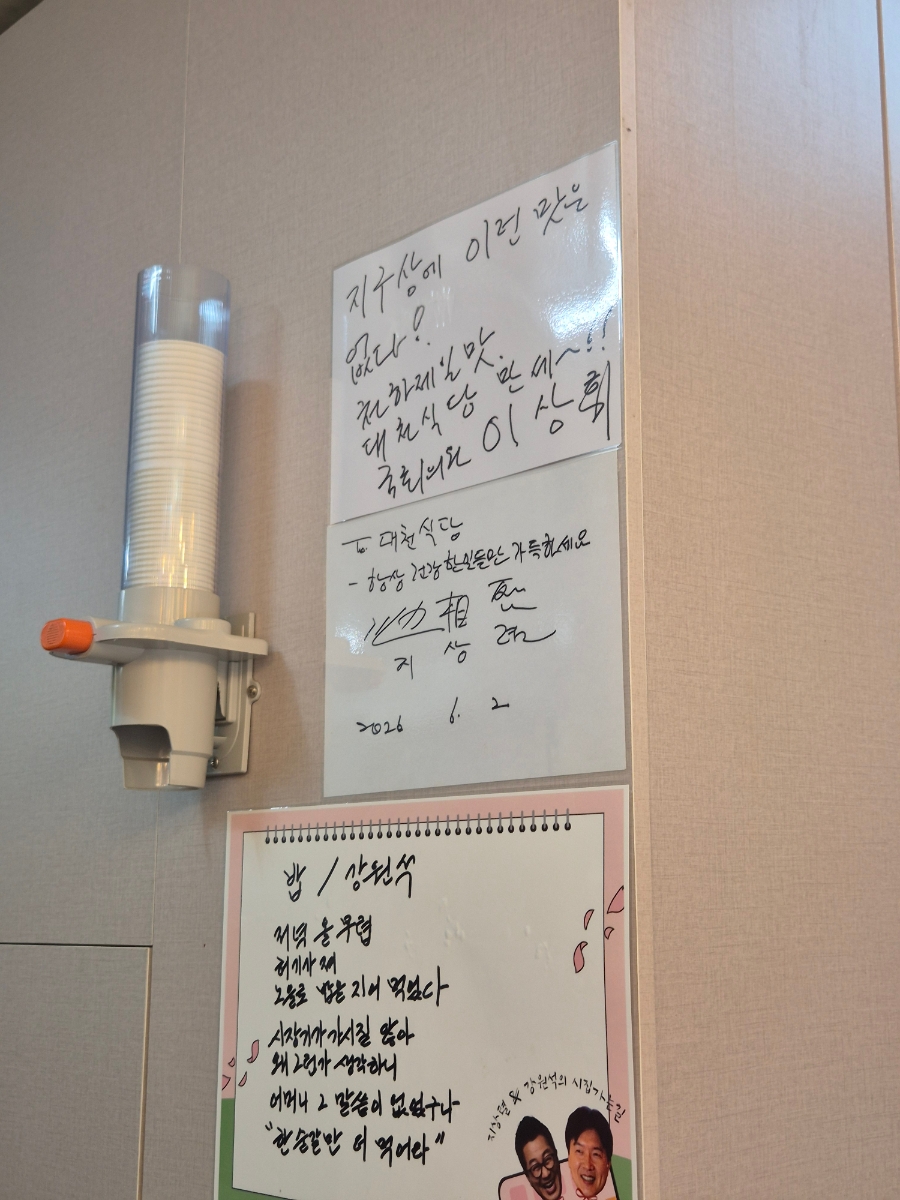 지구상에 이런 맛은
없다!
천하제일 맛.
대천식당 만세~!!
국회의원 이상휘
To 대천식당
- 항상 건강한 일들만 가득하세요
池相烈
지상렬
2026 6. 2
밥 / 강원석
저녁 올 무렵
허기가 져
노을로 밥을 지어 먹었다
시장기가 가시질 않아
왜 그런가 생각하니
어머니 그 말씀이 없었구나
"한 숟갈만 더 먹어라"
지상렬 & 강원석의 시집가는길